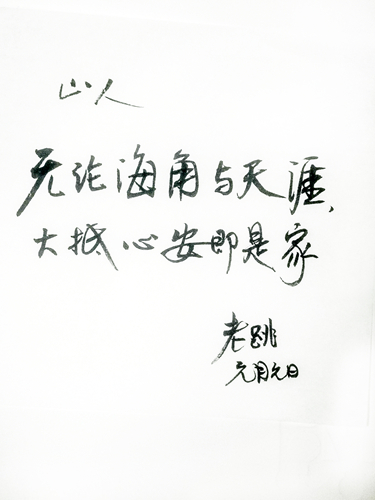 山人
无论海角与天涯,
大抵心安即是家
老跳
元月元日